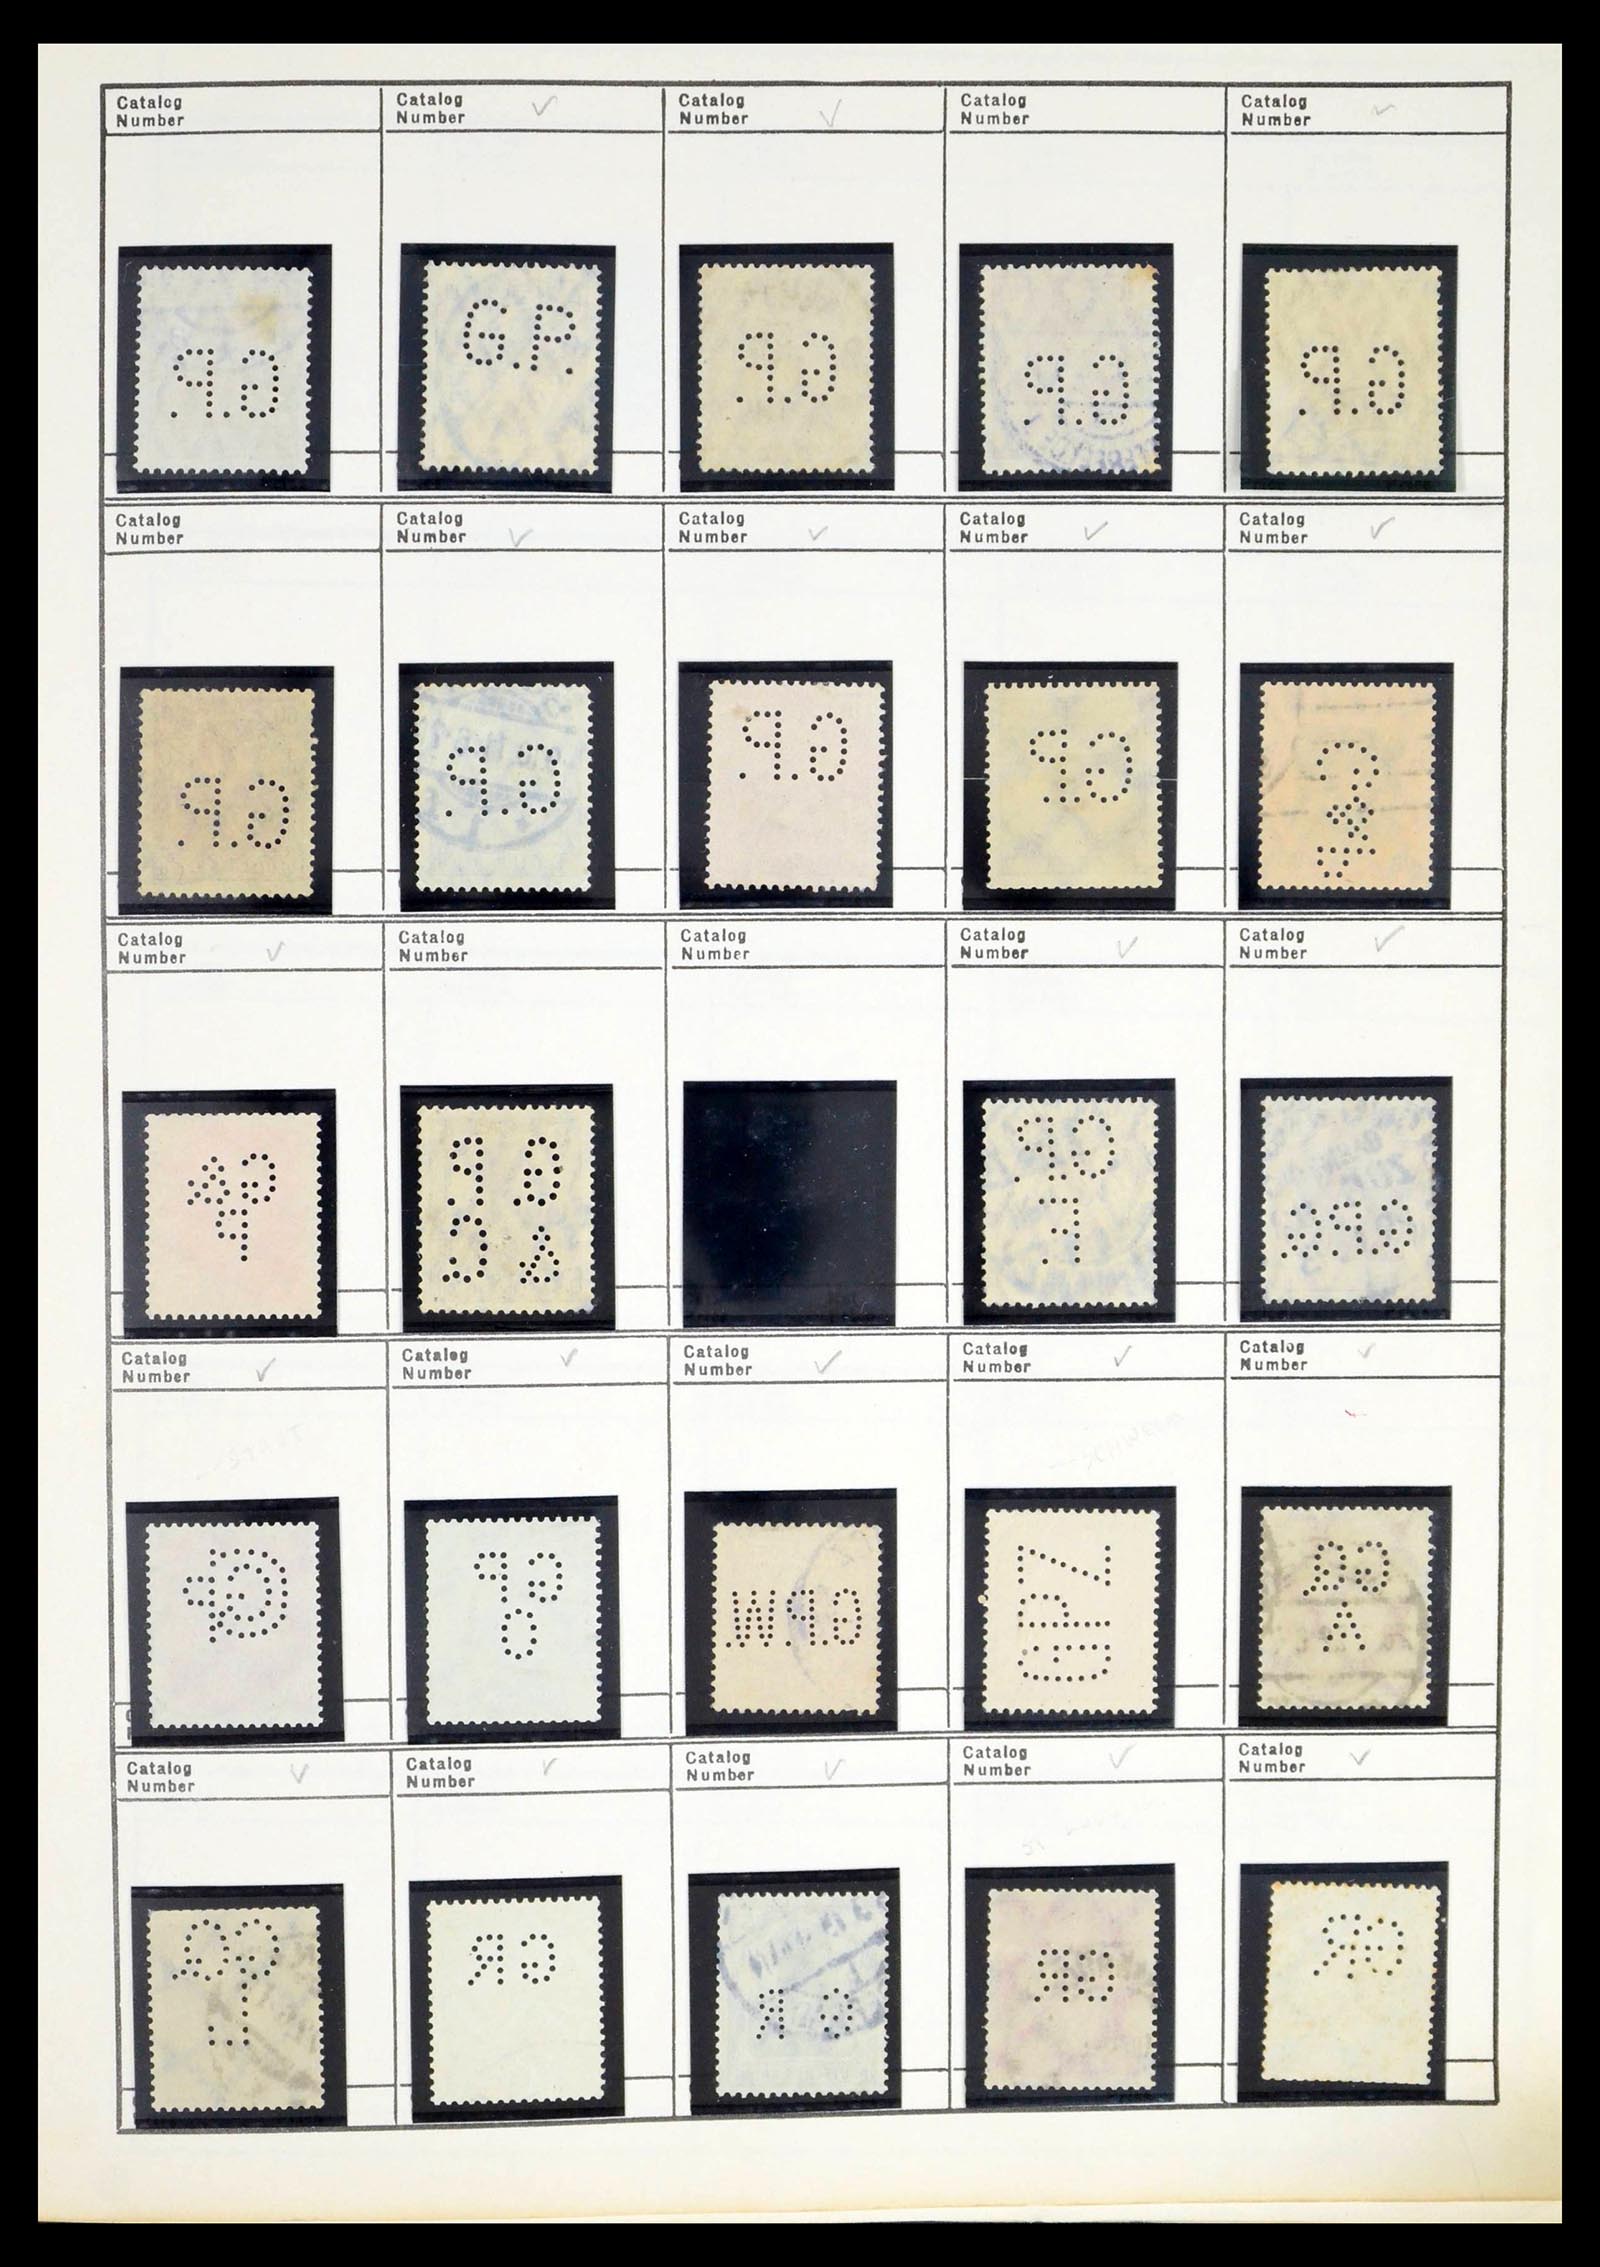 Catalog Catalog Catalog Catalog Catalog
Number Number Number Number Number
G.P. G.P. G.P. G.P. G.P.
Catalog Catalog Catalog Catalog Catalog
Number Number Number Number Number
G.P. G.P. G.P. G.P
Catalog Catalog Catalog Catalog Catalog
Number Number Number Number Number
G&
P
G P
& C
G.P.
F.
G.P.C
Catalog Catalog Catalog Catalog Catalog
Number Number Number Number Number
GP
O
G.P.W.
GPZ
GR
A
Catalog Catalog Catalog Catalog Catalog
Number Number Number Number Number
GR
L
GR
GR
GR
GR